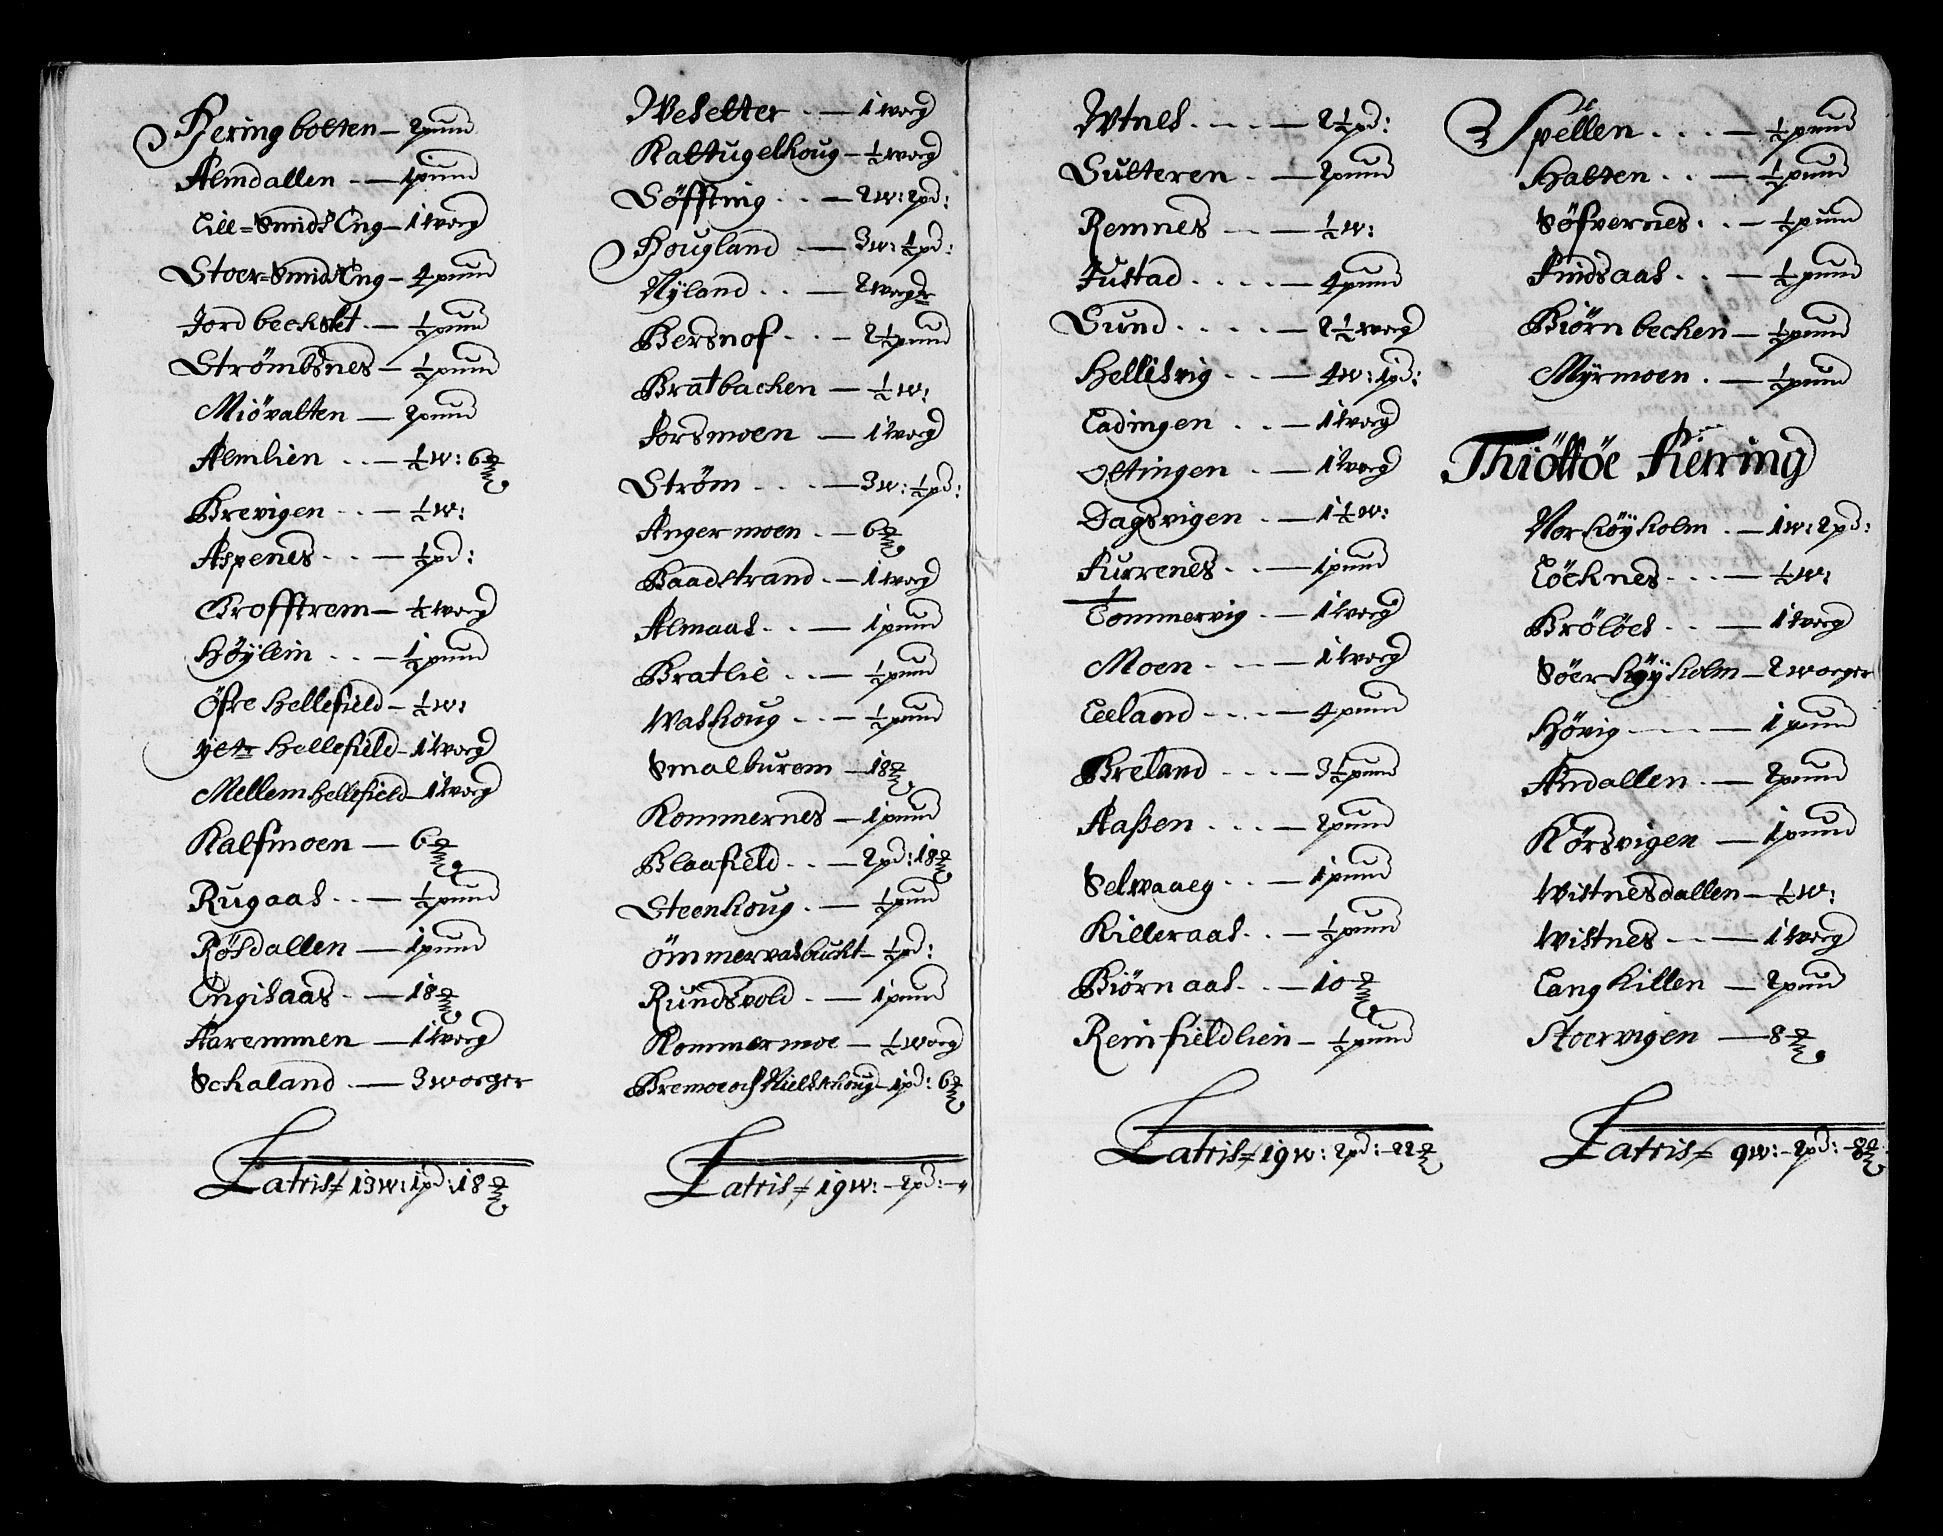 Fieringbolten — 2 pund
Almdallen — 1 pund
Lill=Smids Eng — 1 Worg
Stoer=Smids Eng — 4 pund
Jordbechslet — ½ pund
Strömbsnes — ½ pund
Miövatten — 2 pund
Almlien — ½ w: 6 ℔
Brevigen — ½ w:
Aspenes — ½ pd:
Brofftrem — ½ worg
Höÿlein — ½ pund
Öfre Hellefield — ½ w:
Hellefield — 1 Worg
Mellem Hellefield — 1 Worg
Kalfmoen — 6 ℔
Rugaas — ½ pund
Rösdallen — 1 pund
Engisaas — 18 ℔
Aaremmen — 1 Worg
Schaland — 3 worger
Latris 13 w: 1 pd: 18 ℔
Weselter — 1 Worg
Kaltugelhoug — ½ worg
Söffting — 2 w: 2 pd:
Hougland — 3 w: ½ pd:
Nÿland — 2 worger
Bersnof — 2½ pund
Bratbachen — ½ w:
Forsmoen — 1 Worg
Ström — 3 w: ½ pd:
Angermoen — 6 ℔
Baadstrand — 1 Worg
Almaas — 1 pund
Bratlie — ½ pund
Washoug — ½ pund
Smalburem — 18 ℔
Kommernes — 1 pund
Blaafield — 2 pd: 18 ℔
Steenhoug — ½ pund
Ömmervasbucht — ½ pd:
Rundsvold — 1 pund
Kommermoe — ½ worg
Bremoe och Nielschoug — 1 pd: 6 ℔
Latris 19 w: — 2 pd: —
Wtnes — 2½ pd:
Sulteren — 2 pund
Remnes — ½ w:
Fustad — 4 pund
Sund — 2½ worg
Hellisvig — 4 w: 1 pd:
Ladingen — 1 Worg
Oltingen — 1 Worg
Dagsvigen — 1½ w:
Furrenes — 1 pund
Tommervig — 1 Worg
Moen — 1 Worg
Leeland — 4 pund
Breland — 3½ pund
Aaßen — 2 pund
Selwaaeg — 1 pund
Killeraas — ½ pund
Biörnaas — 10 ℔
Reinfieldlien — ½ pund
Latris 19 w: 2 pd: — 22 ℔
Spellen — ½ pund
Halten — ½ pund
Söfvernes — ½ pund
Findsaas — ½ pund
Biörnbechen — ½ pund
Mÿrmoen — ½ pund
Thiöttöe Fierring
Nor höÿholm — 1 w: 2 pd:
Löchnes — ½ w:
Brölöes — 1 Worg
Söer höÿholm — 2 worger
Hövig — 1 pund
Andallen — 2 pund
Körsvigen — 1 pund
Wistnesdallen — ½ w:
Wistnes — 1 Worg
Langhillen — 2 pund
Stoervigen — 8 ℔
Latris 9 w: — 2 pd: — 8 ℔